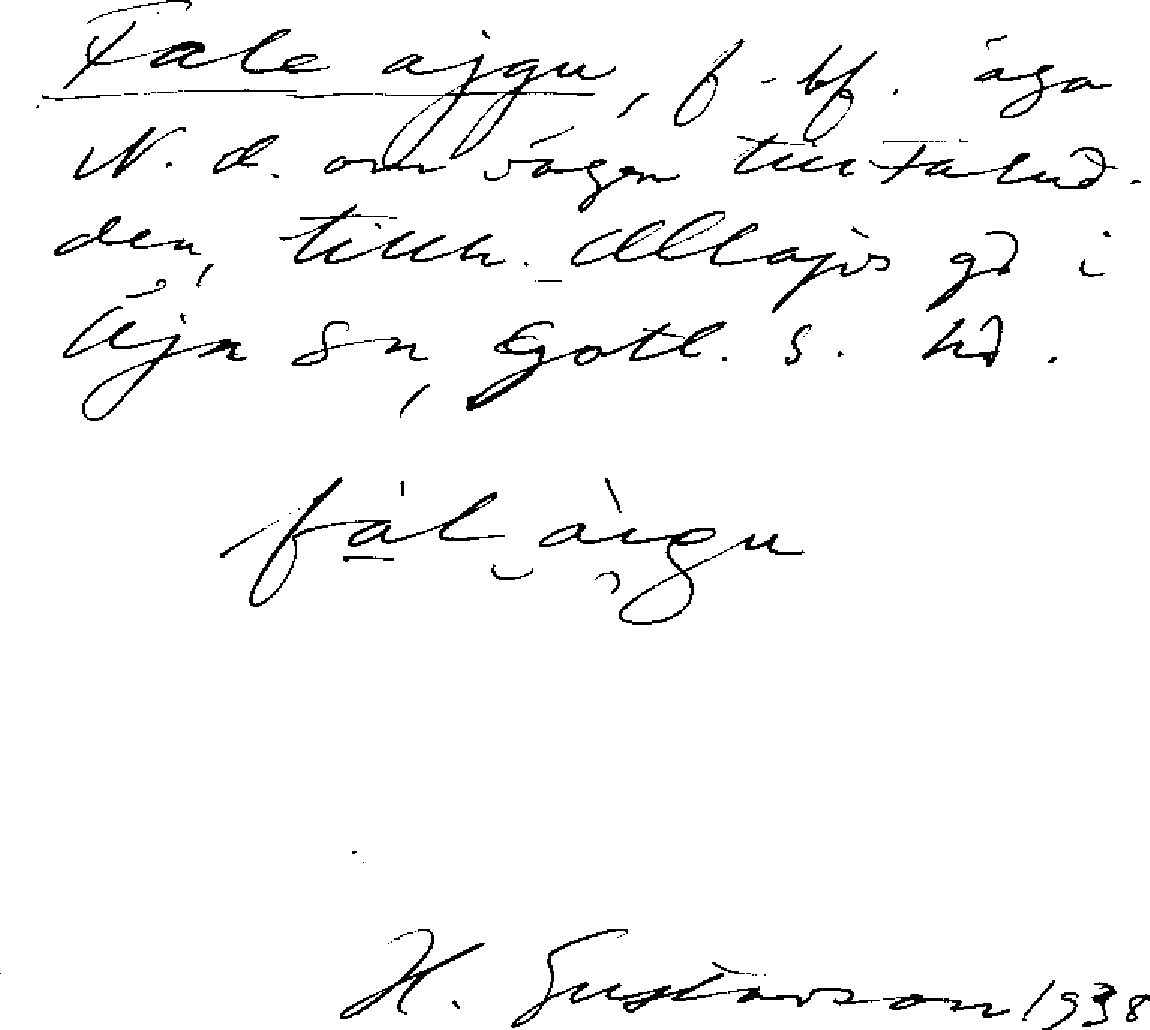 Fale ajgu, f. bf. äga
N. d. om vägen till Falud.
den, tillh. Allajvs gd i
Öja sn, Gotl. s. hd.
fàl àigu
H. Gustavson 1938